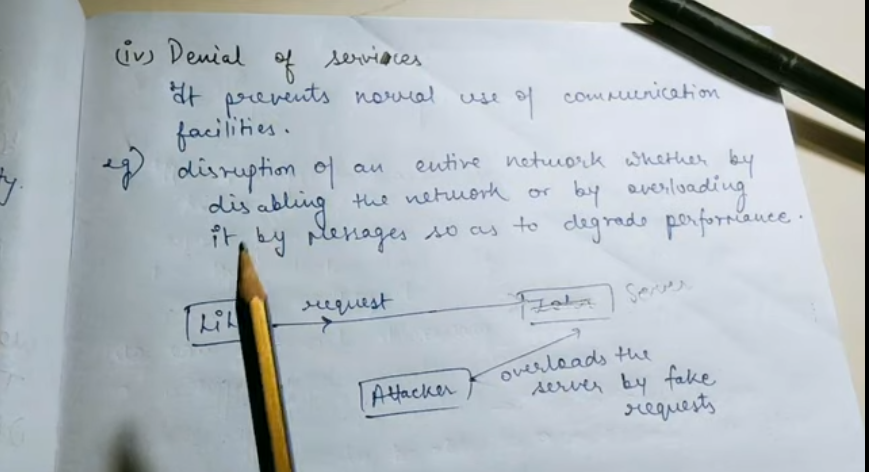 (iv) Denial of services
It prevents normal use of communication
facilities.
eg) disruption of an entire network whether by
disabling the network or by overloading
it by messages so as to degrade performance.
request
Server
Attacker
overloads the
server by fake
requests